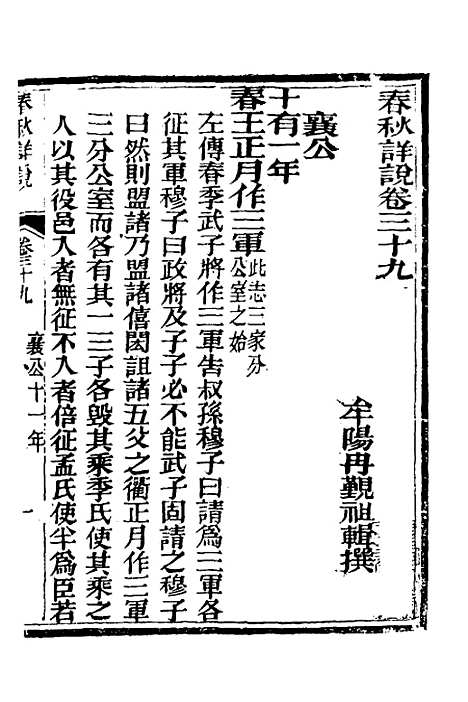 春秋詳說卷三十九
牟陽冉覲祖輯撰
襄公
十有一年
春王正月作三軍此志三家分公室之始
左傳春季武子將作三軍告叔孫穆子曰請爲三軍各
征其軍穆子曰政將及子子必不能武子固請之穆子
曰然則盟諸乃盟諸僖閎詛諸五父之衢正月作三軍
三分公室而各有其一三子各毀其乘季氏使其乘之
人以其役邑入者無征不入者倍征孟氏使半爲臣若
春秋詳說
卷三十九
襄公十一年
一